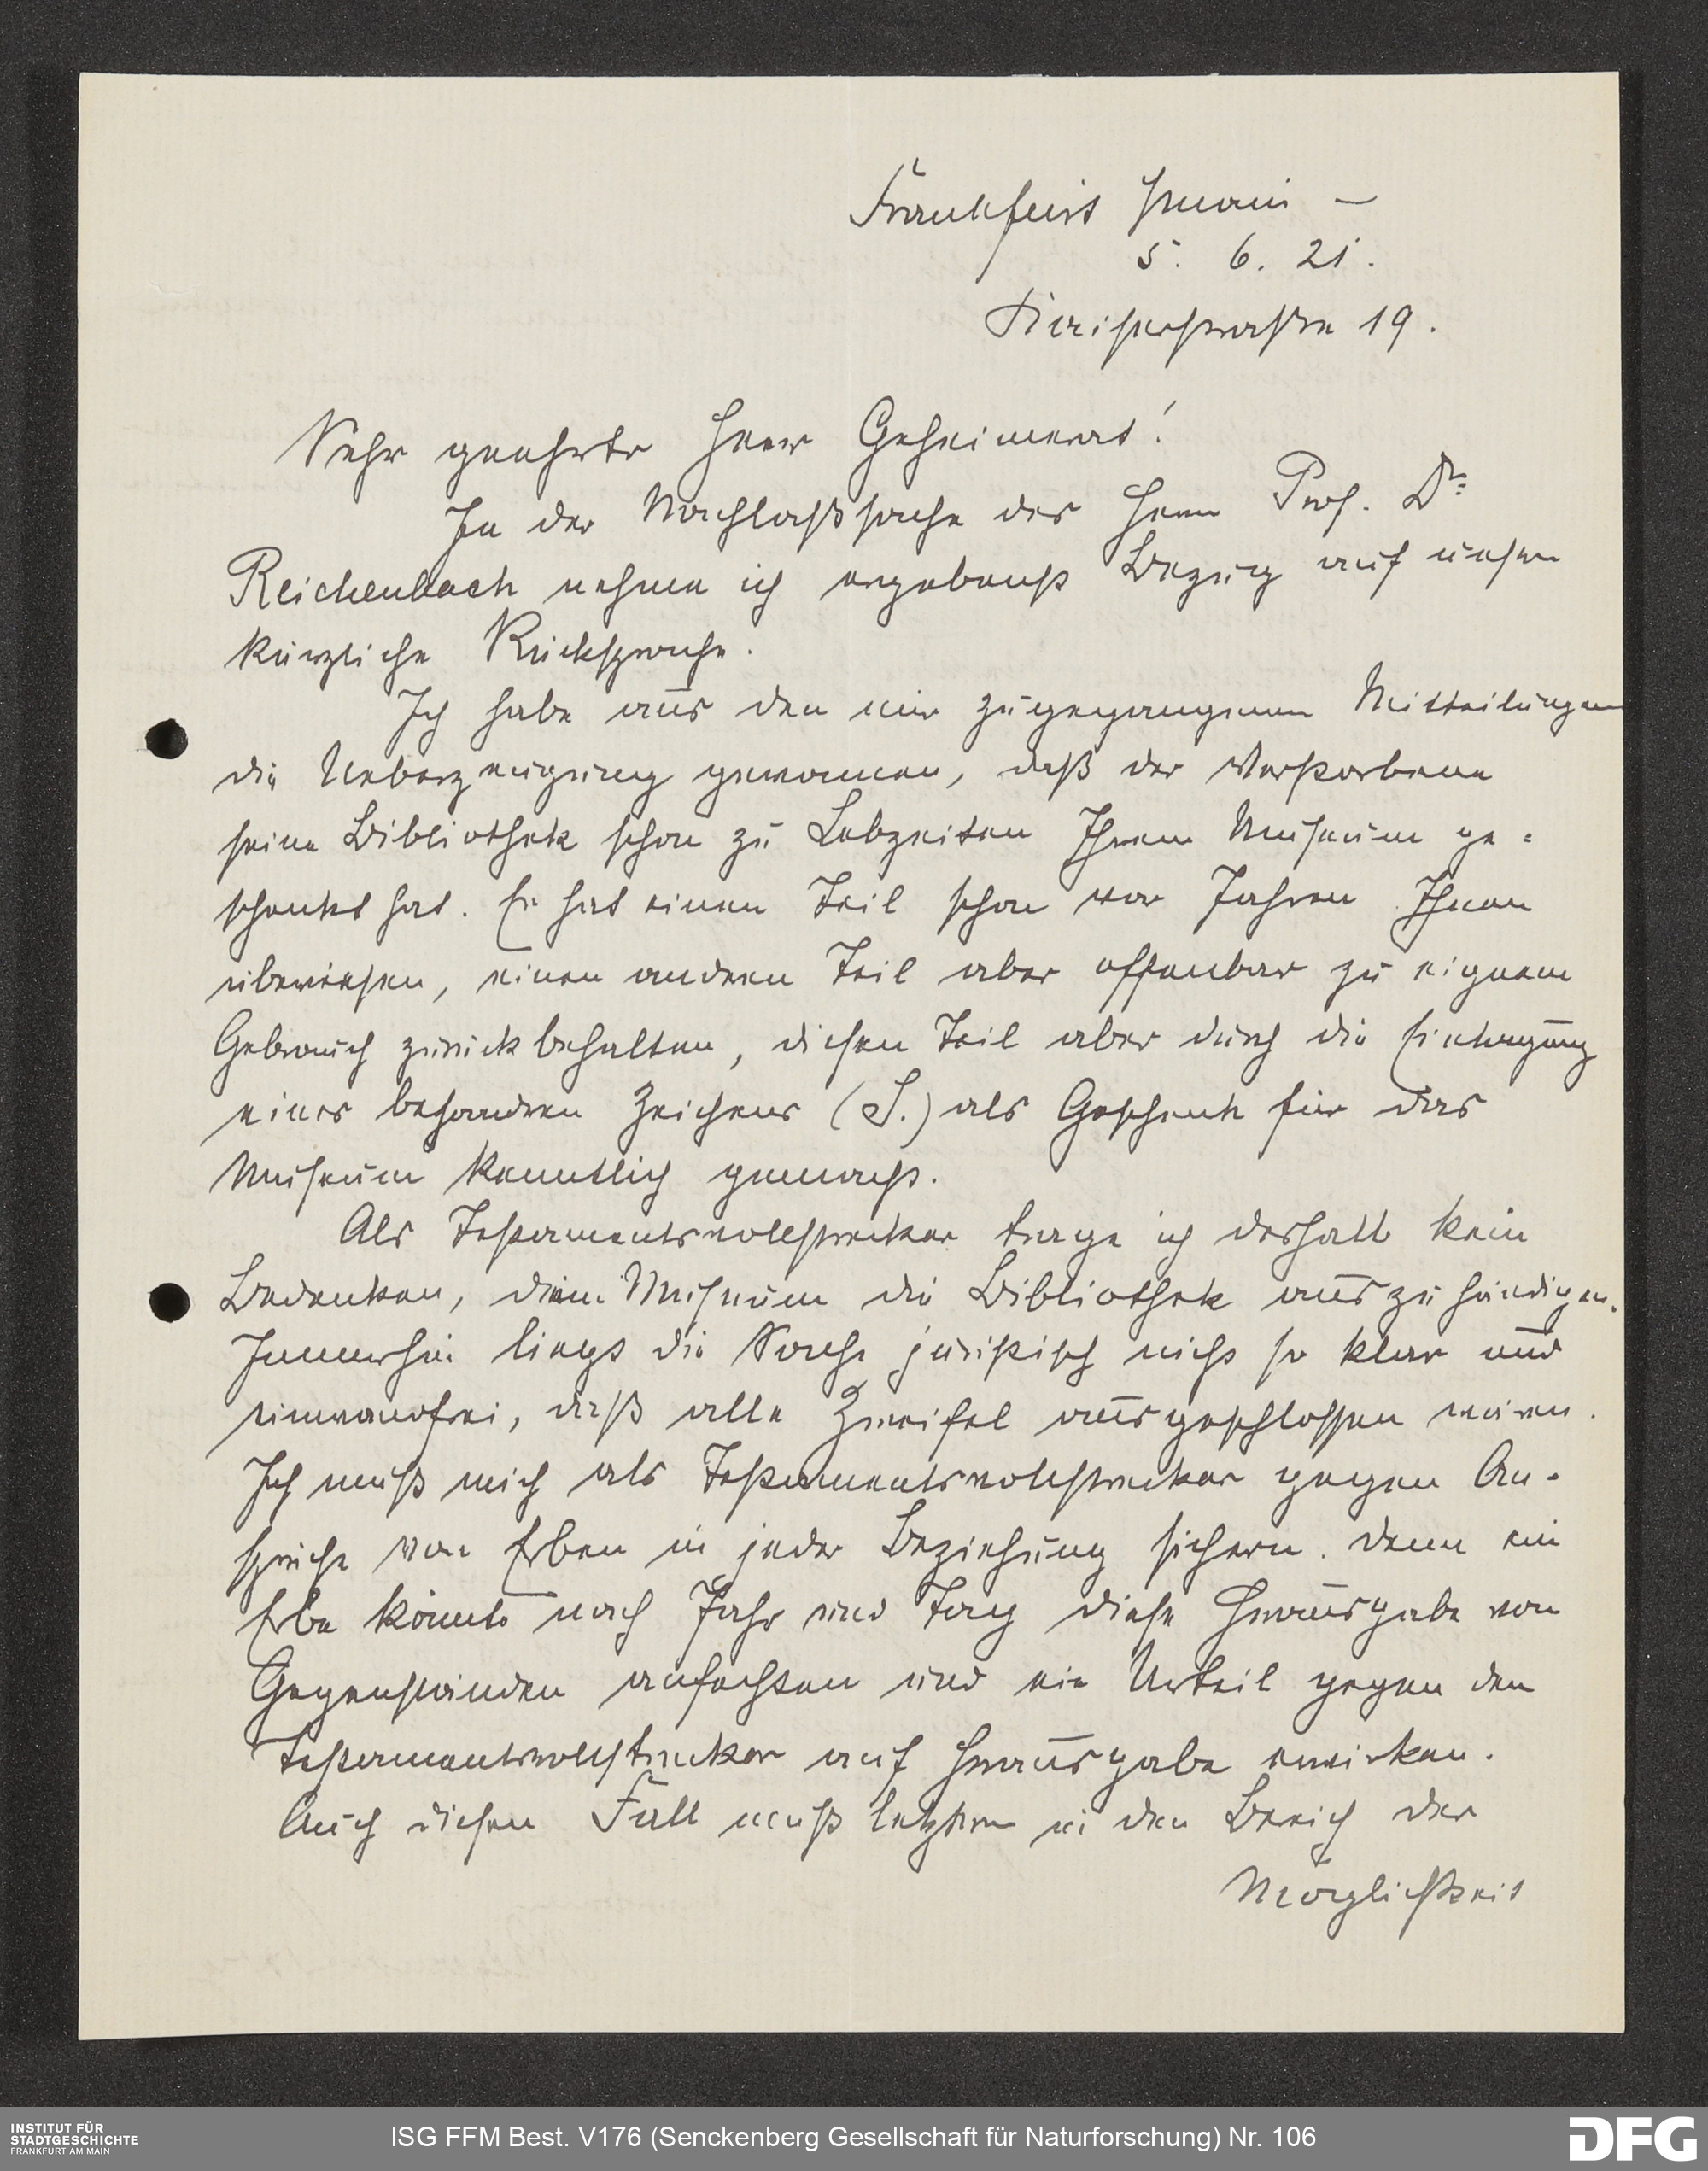 Frankfurt /Main –
5. 6. 21.
Kaiserstraße 19.
Sehr geehrter Herr Geheimerat!
In der Nachlaßsache des Herrn Prof. Dr
Reichenbach nehme ich ergebenst Bezug auf unsere
kürzliche Rücksprache.
Ich habe aus den mir zugegangenen Mitteilungen
die Ueberzeugung gewonnen, daß der Verstorbene
seine Bibliothek schon zu Lebzeiten Ihrem Museum ge=
schenkt hat. Er hat einen Teil schon vor Jahren Ihnen
überwiesen, einen anderen Teil aber offenbar zu eignem
Gebrauch zurückbehalten, diesen Teil aber durch die Eintragung
eines besonderen Zeichens (S.) als Geschenk für das
Museum kenntlich gemacht.
Als Testamentsvollstrecker trage ich deshalb kein
Bedenken, dem Museum die Bibliothek auszuhändigen.
Immerhin liegt die Sache juristisch nicht so klar und
einwandfrei, daß alle Zweifel ausgeschlossen wären.
Ich muß mich als Testamentsvollstrecker gegen An-
sprüche von Erben in jeder Beziehung sichern. Denn ein
Erbe könnte nach Jahr und Tag diese Herausgabe von
Gegenständen anfechten und ein Urteil gegen den
Testamentsvollstrecker auf Herausgabe erwirken.
Auch diesen Fall muß letzterer in den Bereich der
Möglichkeit
INSTITUT FÜR
STADTGESCHICHTE
FRANKFURT AM MAIN
ISG FFM Best. V176 (Senckenberg Gesellschaft für Naturforschung) Nr. 106
DFG